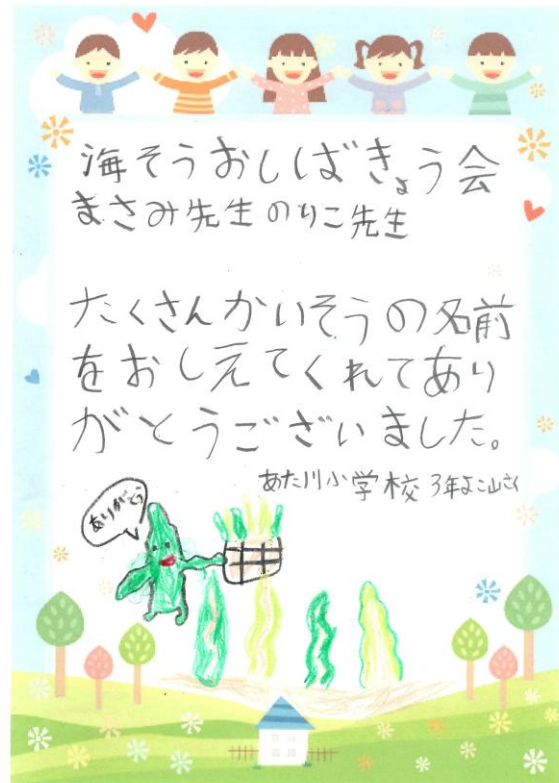 海そうおしばきょう会
まさみ先生のりこ先生
たくさんかいそうの名前
をおしえてくれてあり
がとうございました。
あた川小学校 3年よこ山さく
ありがとう